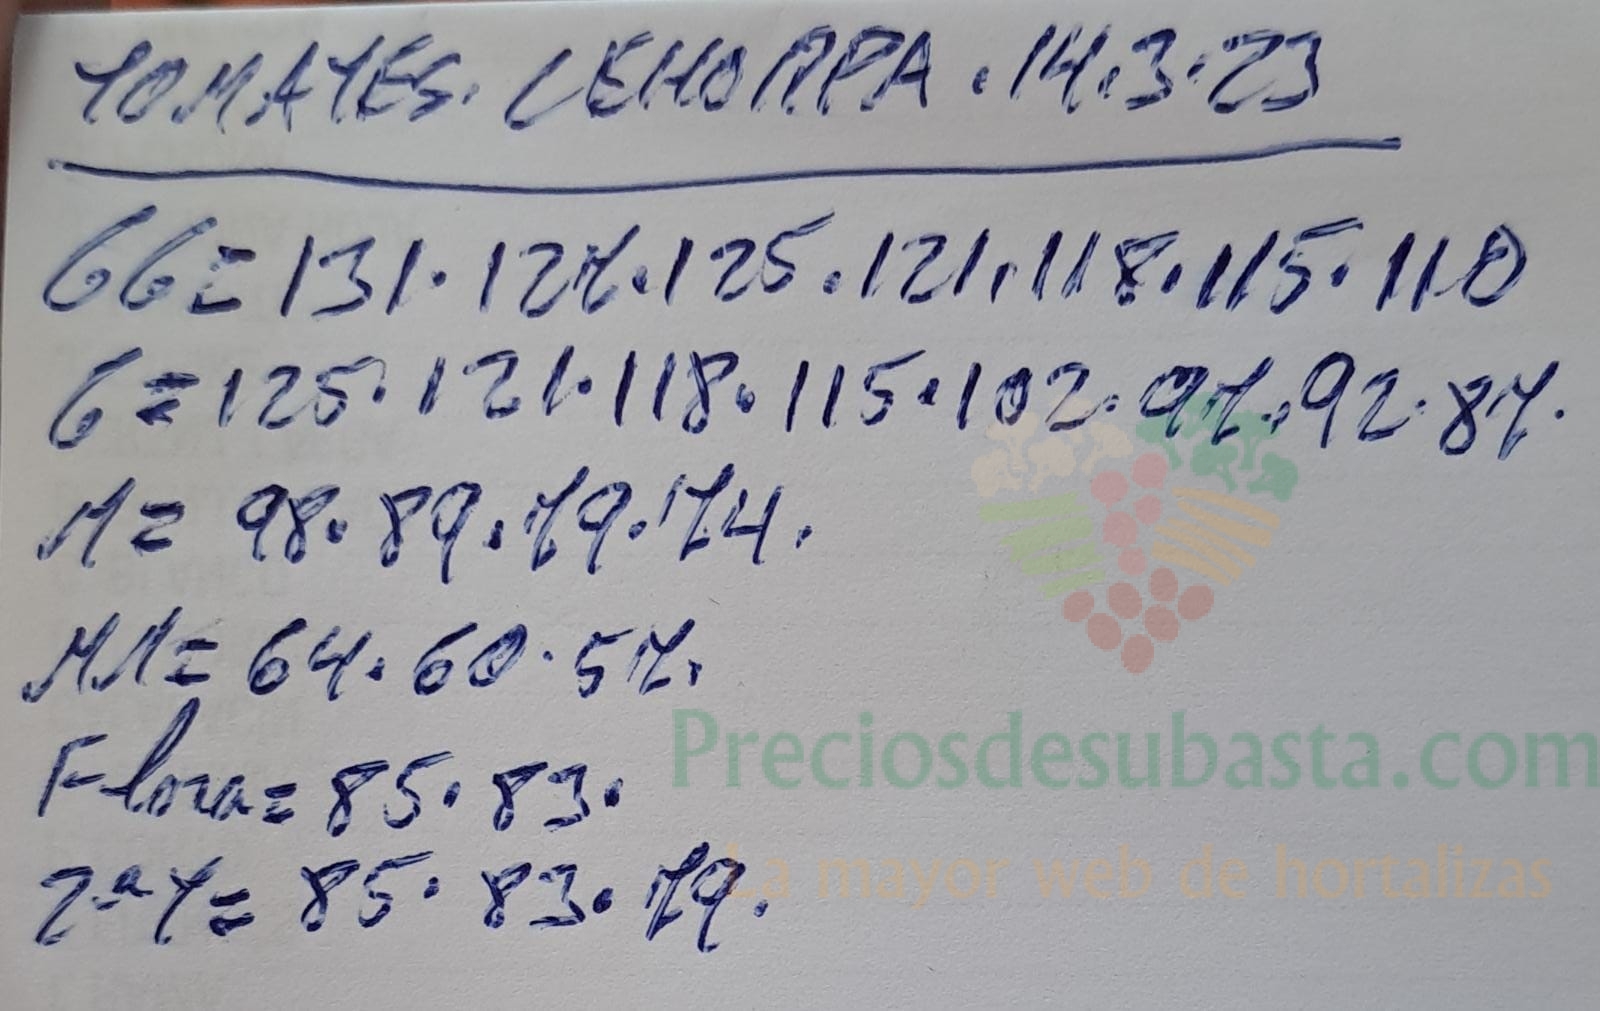 TOMATES. CEHORPA. 14.3.23
GG= 131. 127. 125. 121. 118. 115. 110
G= 125. 121. 118. 115. 102. 97. 92. 87.
M= 98. 89. 79. 74.
MM= 64. 60. 57.
Flora= 85. 83.
2ªT= 85. 83. 79.
Preciosdesubasta.com
La mayor web de hortalizas